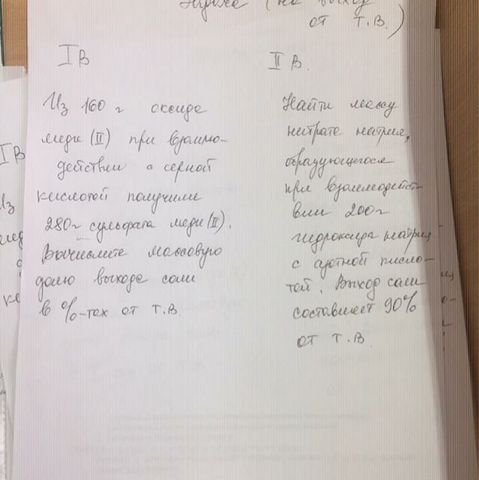 (на выход
от Т.В.)
I В
Из 160 г оксида
меди (II) при взаимо-
действии с серной
кислотой получили
280г сульфата меди (II).
Вычислите массовую
долю выхода соли
в %-тах от Т.В
II В.
Найти массу
нитрата натрия,
образующегося
при взаимодейст
вии 200г
гидроксида натрия
с азотной кисло-
той. Выход соли
составляет 90%
от Т.В.
IВ
Из